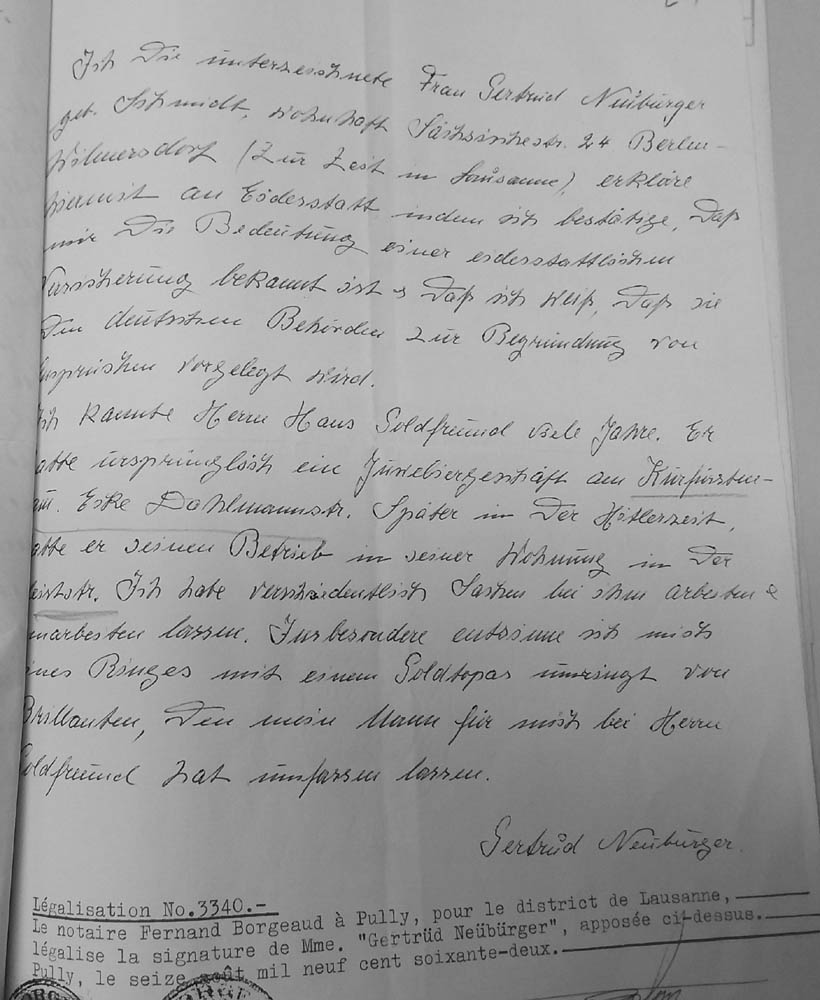 Ich die unterzeichnete Frau Gertrud Neubürger
geb. Schmidt, wohnhaft Sächsischestr. 24 Berlin-
Wilmersdorf (zur Zeit in Lausanne), erkläre
hiermit an Eidesstatt indem ich bestätige, daß
mir die Bedeutung einer eidesstattlichen
Versicherung bekannt ist & daß ich weiß, daß sie
den deutschen Behörden zur Begründung von
Ansprüchen vorgelegt wird.
Ich kannte Herrn Hans Goldfreund viele Jahre. Er
hatte ursprünglich ein Juweliergeschäft am Kurfürsten-
. Ecke Dahlmannstr. Später in der Hitlerzeit,
hatte er seinen Betrieb in seiner Wohnung in der
Ich habe verschiedentlich Sachen bei ihm arbeiten &
umarbeiten lassen. Insbesondere entsinne ich mich
eines Ringes mit einem Goldtopas umringt von
Brillanten, den mein Mann für mich bei Herrn
Goldfreund hat umfassen lassen.
Gertrud Neubürger.
Légalisation No.3340.-
Le notaire Fernand Borgeaud à Pully, pour le district de Lausanne,
légalise la signature de Mme. "Gertrüd Neübürger", apposée ci-dessus.
Pully, le seize août mil neuf cent soixante-deux.